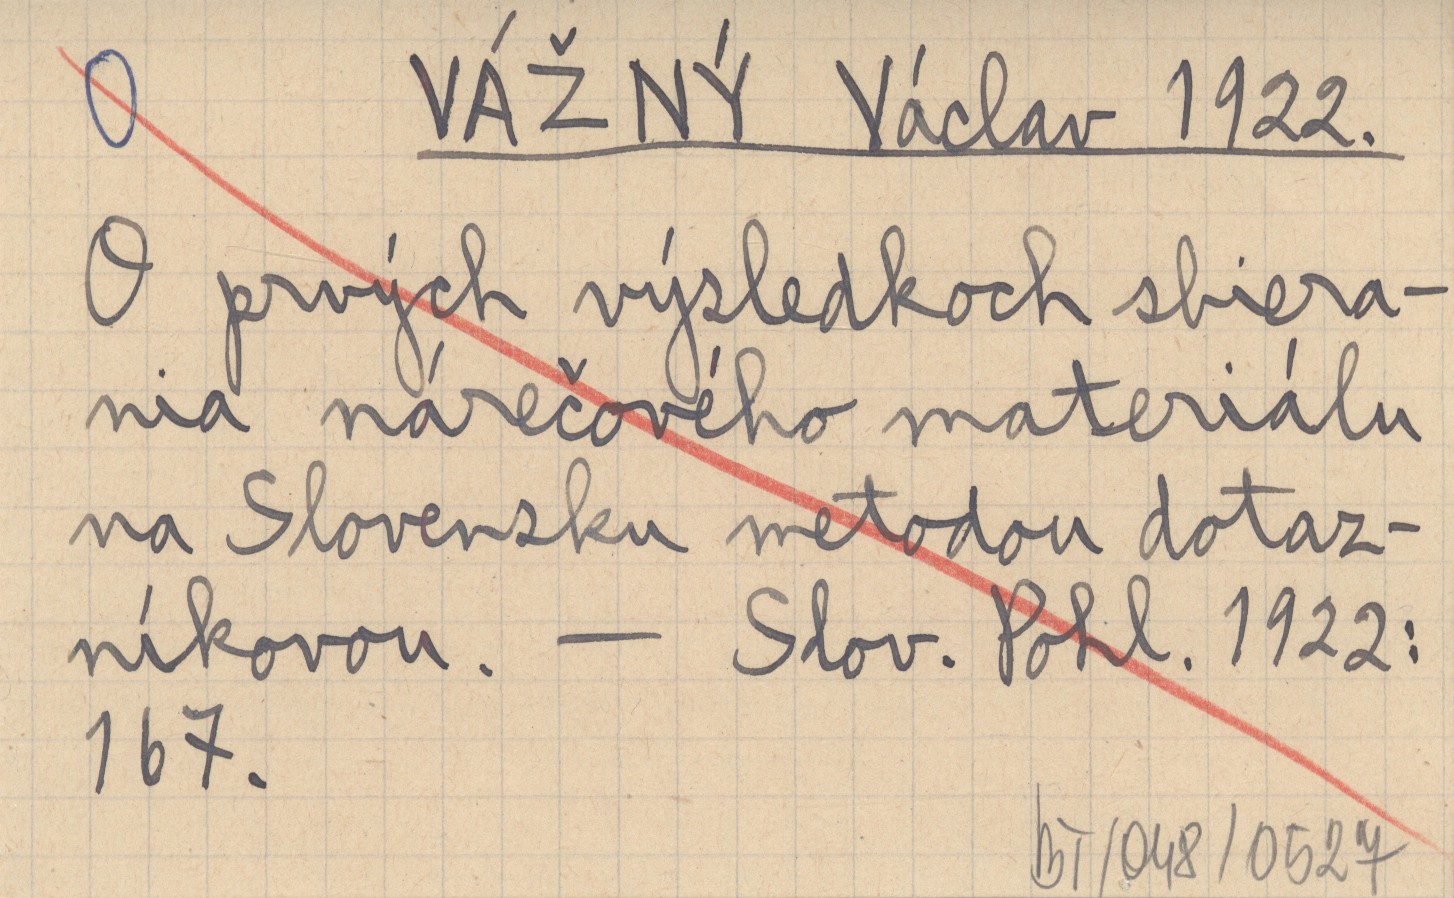 O VÁŽNÝ Václav 1922.
O prvých výsledkoch sbiera-
nia nárečového materiálu
na Slovensku metodou dotaz-
níkovou. — Slov. Pohl. 1922:
167.
BT/048/0527